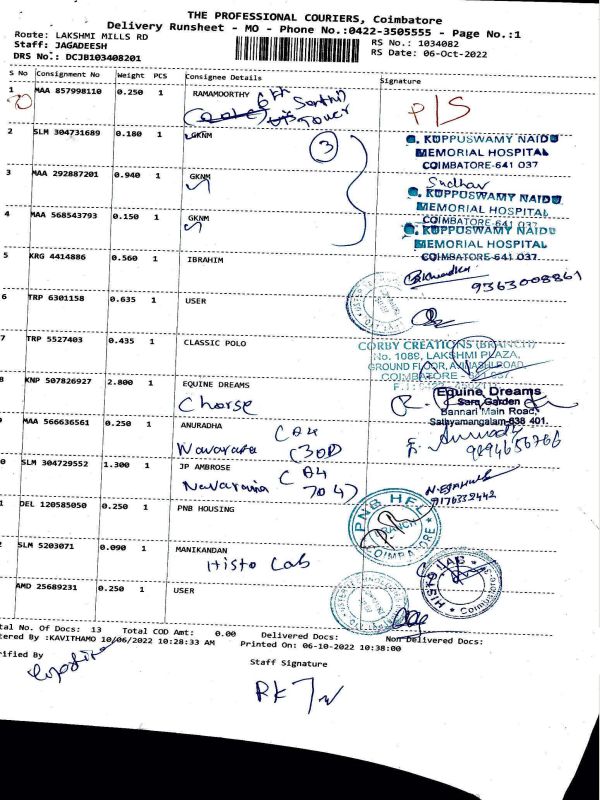 THE PROFESSIONAL COURIERS, Coimbatore
Delivery Runsheet - MO - Phone No.:0422-3505555 - Page No.:1
Route: LAKSHMI MILLS RD
RS No.: 1034082
Staff: JAGADEESH
RS Date: 06-Oct-2022
DRS No.: DCJB103408201
S No Consignment No Weight PCS Consignee Details Signature
1 MAA 857998110 0.250 1 RAMAMOORTHY 6th
Tower
P/S
2 SLM 304731689 0.180 1 GKNM
3
G. KUPPUSWAMY NAIDU
MEMORIAL HOSPITAL
COIMBATORE-641 037
3 MAA 292887201 0.940 1 GKNM
Sudhar
G. KUPPUSWAMY NAIDU
MEMORIAL HOSPITAL
COIMBATORE-641 037
4 MAA 568543793 0.150 1 GKNM
G. KUPPUSWAMY NAIDU
MEMORIAL HOSPITAL
COIMBATORE-641 037
5 KRG 4414886 0.560 1 IBRAHIM
9363008861
6 TRP 6301158 0.635 1 USER
7 TRP 5527403 0.435 1 CLASSIC POLO
CORBY CREATIONS (BRANCH)
No. 1089, LAKSHMI PLAZA,
GROUND FLOOR, AVINASHI ROAD,
COIMBATORE - 641 037
8 KNP 507826927 2.800 1 EQUINE DREAMS
Chorse
Equine Dreams
Garden
Bannari Main Road,
Sathyamangalam-638 401.
9 MAA 566636561 0.250 1 ANURADHA
CA4
9894656766
0 SLM 304729552 1.300 1 JP AMBROSE
CA4
704)
9176332442
1 DEL 120585050 0.250 1 PNB HOUSING
PNB HF
BRANCH
COIMBATORE
2 SLM 5203071 0.090 1 MANIKANDAN
Histo Lab
HISTO LAB
Coimbatore
AMD 25689231 0.250 1 USER
tal No. Of Docs: 13 Total COD Amt: 0.00 Delivered Docs: Non Delivered Docs:
tered By :KAVITHAMO 10/06/2022 10:28:33 AM Printed On: 06-10-2022 10:38:00
rified By
Staff Signature